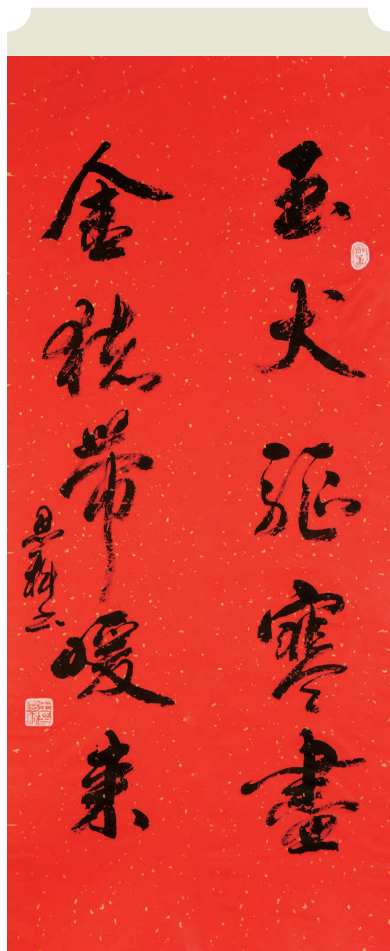 玉犬驱寒尽
金猪带暖来